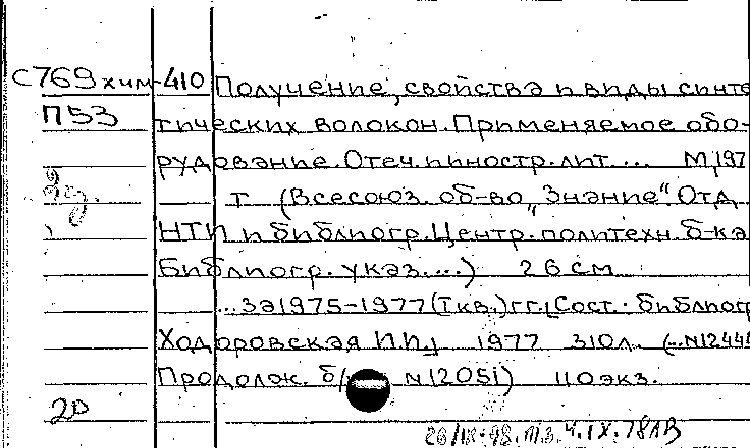 С769хим-410 Получение, свойства и виды синте
П53 тических волокон. Применяемое обо-
рудование. Отеч. и иностр. лит. ... М, 197
т (Всесоюз. об-во „Знание“ Отд
НТП и библиогр. Центр. политехн. б-ка
Библиогр. указ. ...) 26 см
...за 1975-1977 (I кв.) гг. [Сост. библиог
Ходоровская И.П.] 1977 310л. (...N1244
Продолж. б/ N12051) 110экз.
20
4.IX.78